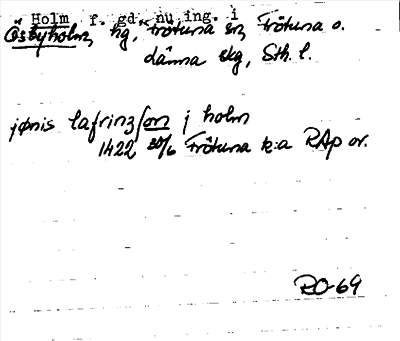 Holm f. gd nu ing. i
Östbyholm, hg, Frötuna sn, Frötuna o.
länna skg, Sth. l.
jønis lafrinzson j holm
1422 30/6 Frötuna k:a RAp or.
RO-69